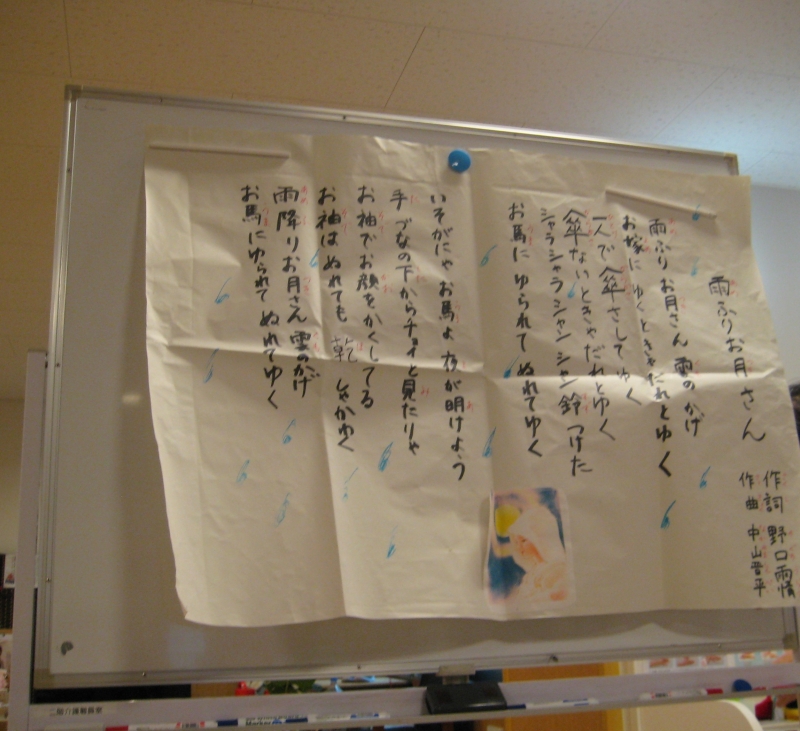 雨ふりお月さん
作詞 野口雨情
作曲 中山晋平
雨ふり お月さん 雲の かげ
お嫁に ゆくときゃ だれと ゆく
一人で 傘 さして ゆく
傘ないときゃ だれと ゆく
シャラシャラ シャン シャン 鈴 つけた
お馬に ゆられて ぬれて ゆく
いそがにゃ お馬よ 夜が 明けよう
手づなの下から チョイと 見たりゃ
お袖で お顔を かくしてる
お袖は ぬれても 乾しゃかわく
雨降り お月さん 雲の かげ
お馬に ゆられて ぬれて ゆく